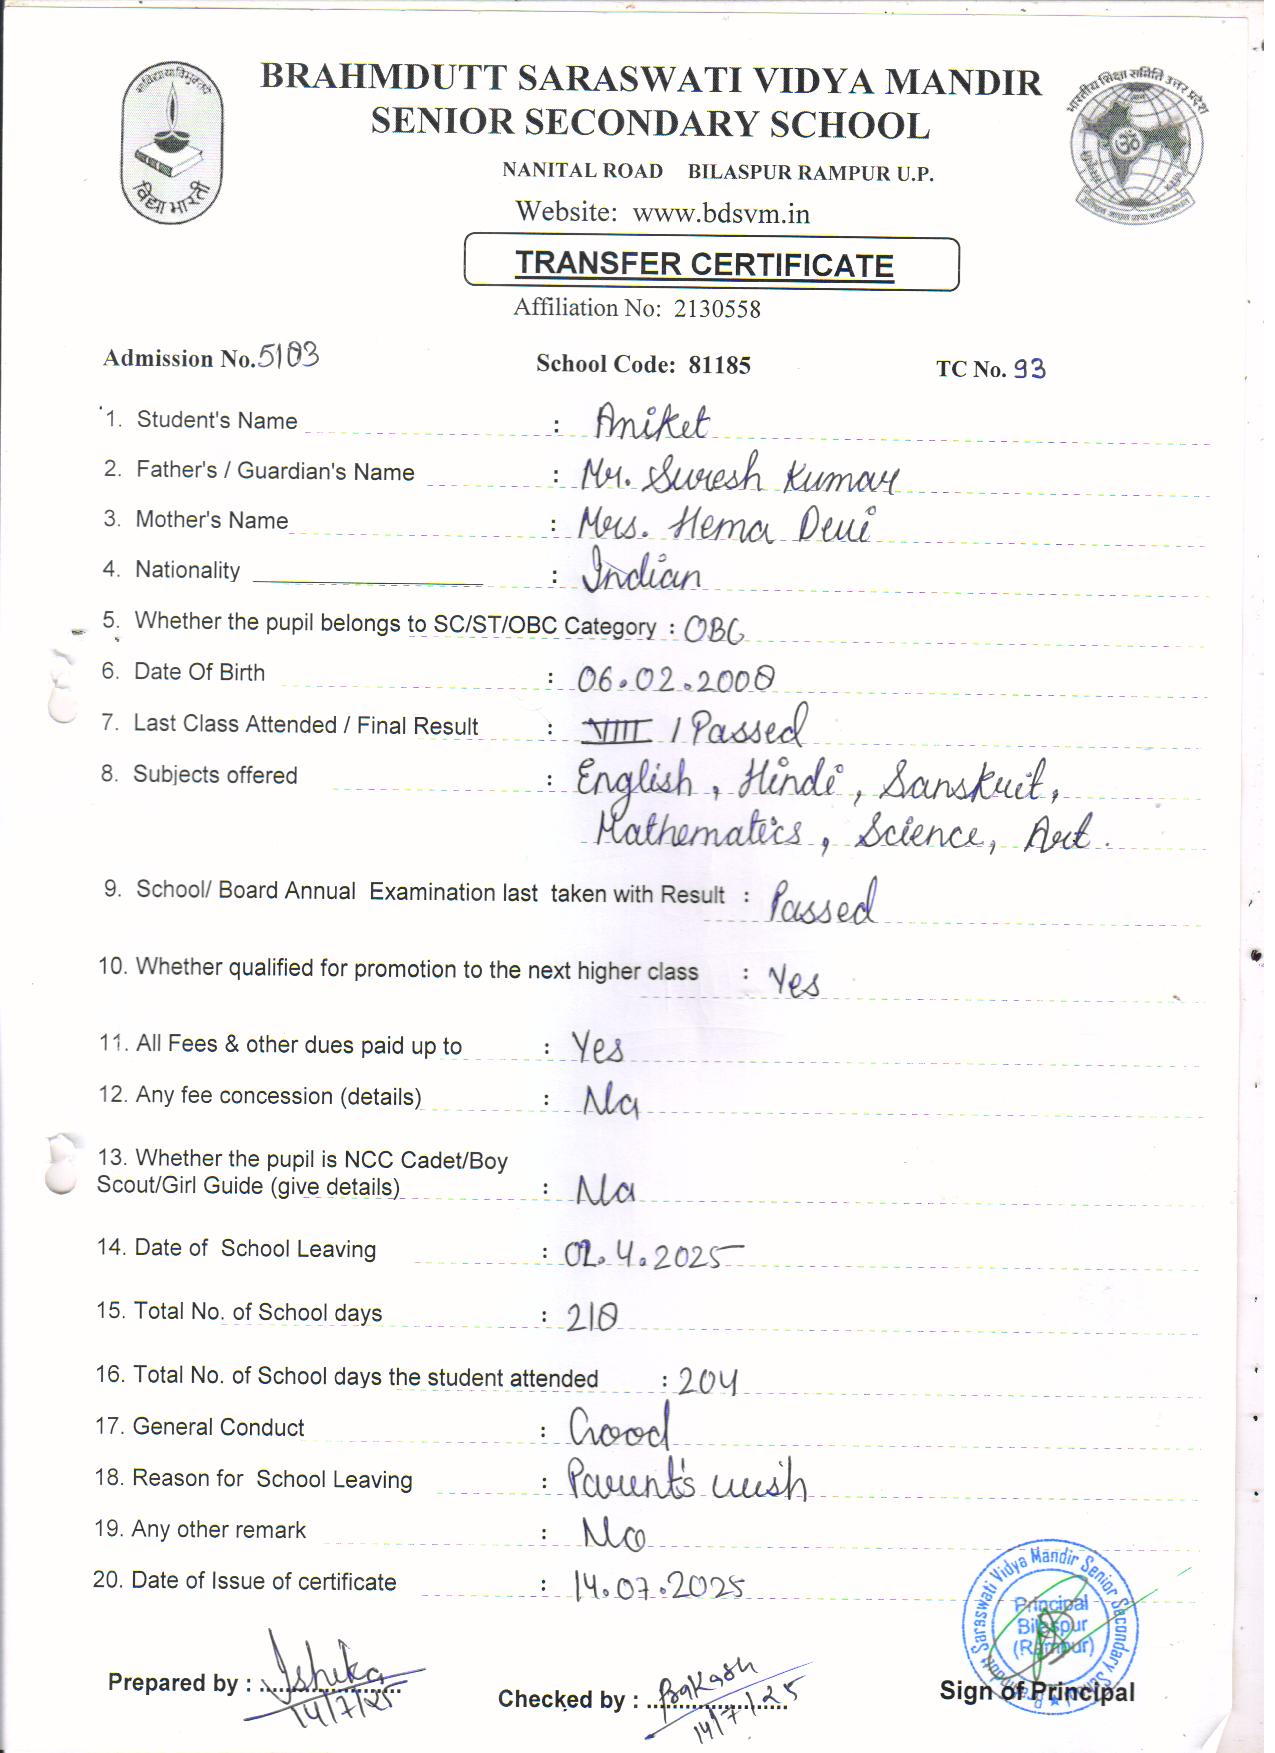 BRAHMDUTT SARASWATI VIDYA MANDIR
SENIOR SECONDARY SCHOOL
NANITAL ROAD BILASPUR RAMPUR U.P.
Website: www.bdsvm.in
विद्या भारती
TRANSFER CERTIFICATE
Affiliation No: 2130558
Admission No. 5103 School Code: 81185 TC No. 93
1. Student's Name : Aniket
2. Father's / Guardian's Name : Mr. Suresh Kumar
3. Mother's Name : Mrs. Hema Devi
4. Nationality : Indian
5. Whether the pupil belongs to SC/ST/OBC Category : OBC
6. Date Of Birth : 06.02.2008
7. Last Class Attended / Final Result : VIII / Passed
8. Subjects offered : English, Hindi, Sanskrit,
Mathematics, Science, Art.
9. School/ Board Annual Examination last taken with Result : Passed
10. Whether qualified for promotion to the next higher class : Yes
11. All Fees & other dues paid up to : Yes
12. Any fee concession (details) : Na
13. Whether the pupil is NCC Cadet/Boy
Scout/Girl Guide (give details) : Na
14. Date of School Leaving : 02.4.2025
15. Total No. of School days : 210
16. Total No. of School days the student attended : 204
17. General Conduct : Good
18. Reason for School Leaving : Parent's wish
19. Any other remark : No
20. Date of Issue of certificate : 14.07.2025
Saraswati Vidya Mandir Senior Secondary School
Principal
Bilaspur
(Rampur)
Prepared by : Ishika
14/7/25
Checked by : Prakash
14/7/25
Sign of Principal